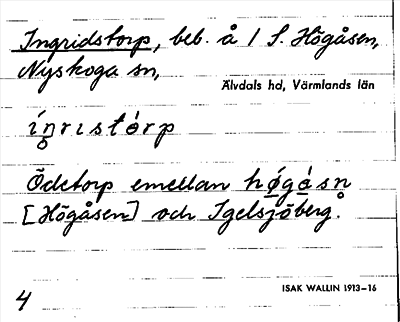 Ingridstorp, beb. å 1 f. Högåsen,
Nyskoga sn,
Älvdals hd, Värmlands län
íŋrɪstórp
Ödetorp emellan hǿgásn̥
[Högåsen] och Igelsjöberg.
ISAK WALLIN 1913–16
4